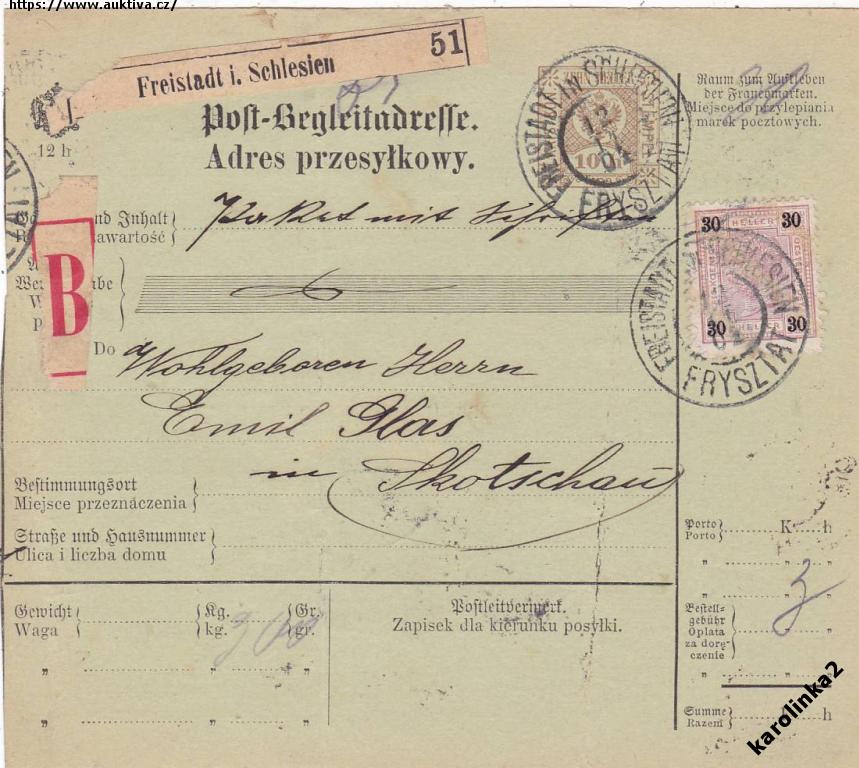 https://www.auktiva.cz/
Freistadt i. Schlesien 51
Post-Begleitadresse.
Adres przesyłkowy.
12 h
ZEHN HELLER
10
FREISTADT IN SCHLESIEN
12
FRYSZTAT
Raum zum Aufkleben
der Francomarken.
Miejsce do przylepiania
marek pocztowych.
nd Inhalt
awartość
Paket mit Schriften
be
B
30 HELLER 30
30 HELLER 30
FREISTADT IN SCHLESIEN
FRYSZTAT
Do Wohlgeboren Herrn
Emil Glas
in Skotschau
Bestimmungsort
Miejsce przeznáczenia
Straße und Hausnummer
Ulica i liczba domu
Gewicht Kg. Gr.
Waga kg. gr.
Postleitvermerk.
Zapisek dla kierunku posyłki.
Porto K h
Porto
Bestell-
gebühr
Opłata
za dorę-
czenie
Summe h
Razem
karolinka2